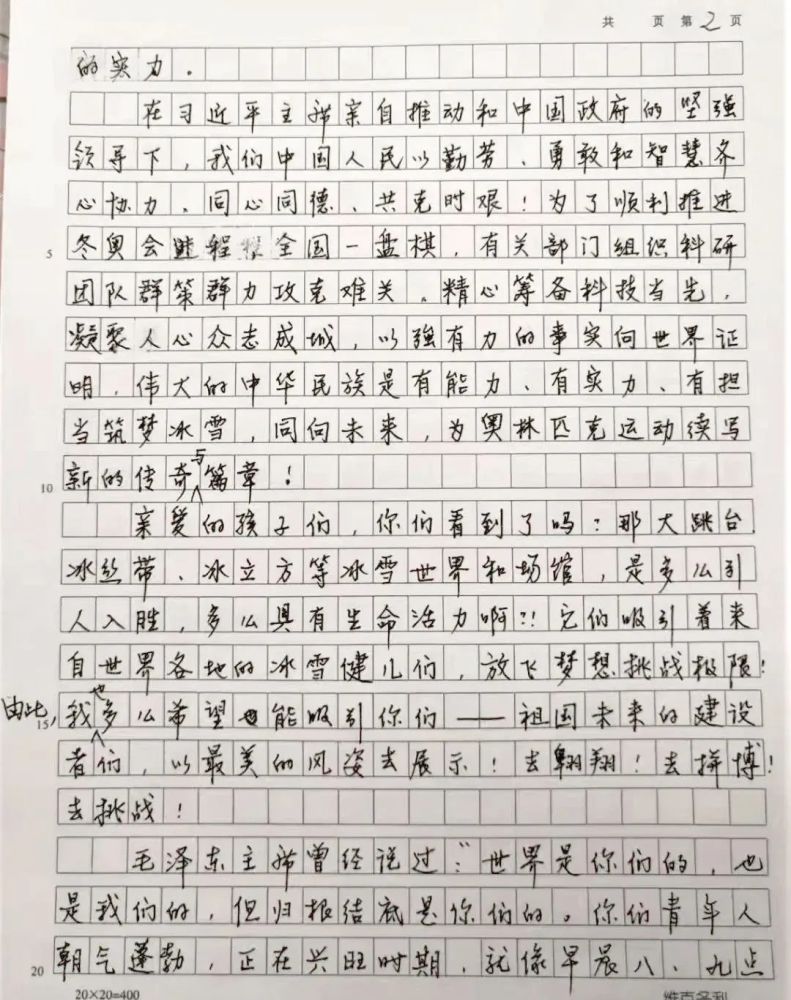 共 页 第 2 页
的实力。
在习近平主席亲自推动和中国政府的坚强
领导下，我们中国人民以勤劳、勇敢和智慧齐
心协力、同心同德、共克时艰！为了顺利推进
5 冬奥会进程，全国一盘棋，有关部门组织科研
团队群策群力攻克难关。精心筹备科技当先，
凝聚人心众志成城，以强有力的事实向世界证
明，伟大的中华民族是有能力、有实力、有担
当筑梦冰雪，同向未来，为奥林匹克运动续写
10 新的传奇与篇章！
亲爱的孩子们，你们看到了吗？那大跳台、
冰丝带、冰立方等冰雪世界和场馆，是多么引
人入胜，多么具有生命活力啊?！它们吸引着来
自世界各地的冰雪健儿们，放飞梦想挑战极限！
15 由此，我也多么希望能吸引你们——祖国未来的建设
者们，以最美的风姿去展示！去翱翔！去拼博！
去挑战！
毛泽东主席曾经说过：“世界是你们的，也
是我们的，但归根结底是你们的。你们青年人
20 朝气蓬勃，正在兴旺时期，就像早晨八、九点
20×20=400